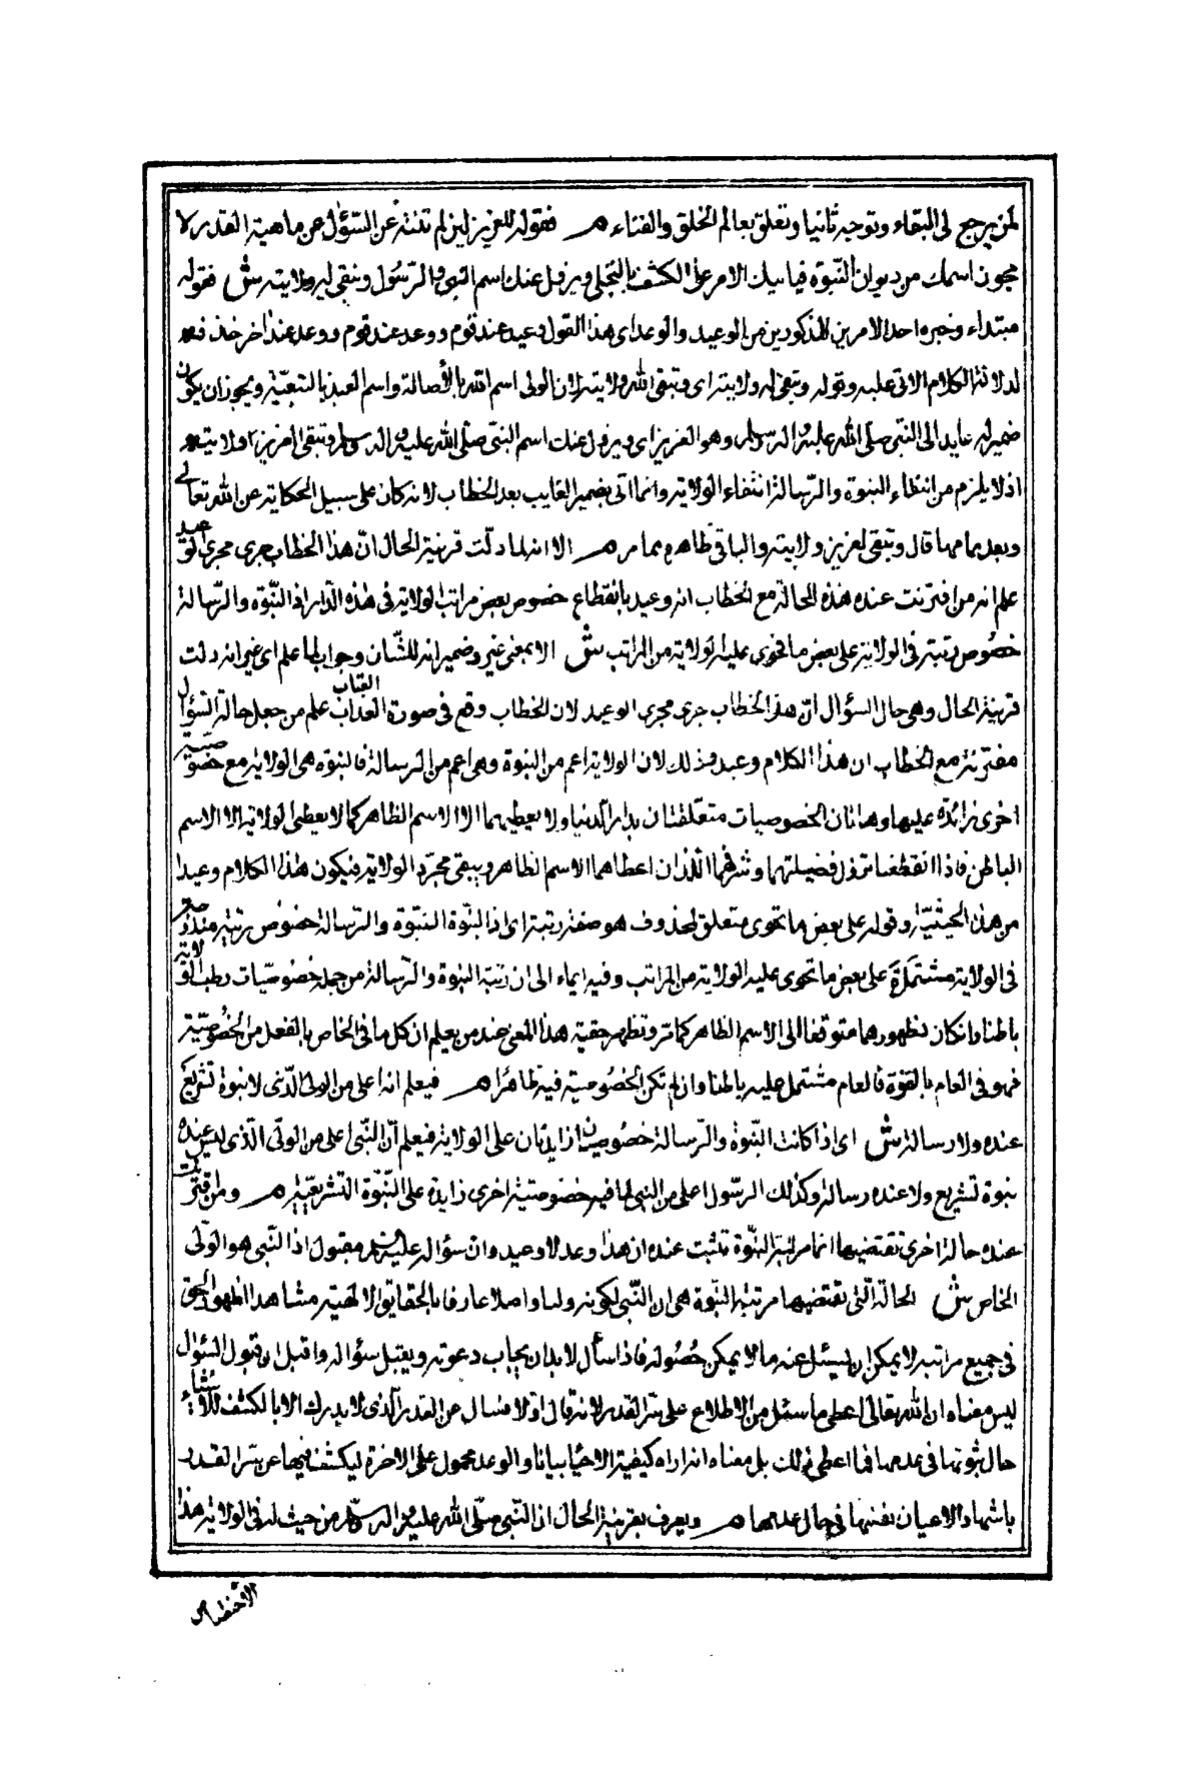 لمن يرجع الى البقاء وتوجيه ثانيا وتعلق بعالم الخلق والفناء م فقوله للعزيز لئن لم تنته عن السؤال عن ماهية القدر لا
محون اسمك من ديوان النبوة فياتيك الامر على الكشف بالتجلى ويزول عنك اسم النبى والرسول وتبقى له ولايته ش فقوله
مبتداء وخبره احد الامرين المذكورين من الوعيد والوعد اى هذا القول وعيد عند قوم ووعد عند قوم ووعد عند اخر حذفه
لدلالة الكلام الاتى عليه وقوله وتبقى له ولايته اى وتبقى الله ولايته لان الولى اسم الله بالأصالة واسم العبد بالتبعية ويجوز ان يكون
ضمير له عايد الى النبى صلى الله عليه واله وسلم وهو العزيز اى ويزول عنك اسم النبى صلى الله عليه واله وسلم وتبقى العزيز ولايته
اذ لا يلزم من انتفاء النبوة والرسالة انتفاء الولاية وانما اتى بضمير الغايب بعد الخطاب لانه كان على سبيل الحكاية عن الله تعالى
وبعد تمامها قال وتبقى لعزيز ولايته والباقى ظاهر مما مر م الا انه لما دلت قرينة الحال ان هذا الخطاب جرى مجرى الوعيد
علم انه من اقترنت عنده هذه الحالة مع الخطاب انه وعيد بانقطاع خصوص بعض مراتب الولاية فى هذه الدار اذ النبوة والرسالة
خصوص رتبة فى الولاية على بعض ما تحوى عليه الولاية من المراتب ش الا بمعنى غير وضمير انه للشان وجواب لما علم اى غير انه دلت
قرينة الحال وهى حال السؤال ان هذا الخطاب جرى مجرى الوعيد لان الخطاب وقع فى صورة العذاب العتاب علم من جعل حالة السؤال
مقترنة مع الخطاب ان هذا الكلام وعيد وذلك لان الولاية اعم من النبوة وهى اعم من الرسالة فالنبوة هى الولاية مع خصوصية
اخرى زائدة عليها وهاتان الخصوصيات متعلقتان بدار الدنيا ولا يعطيهما الا الاسم الظاهر كما لا يعطى الولاية الا الاسم
الباطن فاذا انقطعتا تزول فضيلتهما وشرفهما اللذان اعطاهما الاسم الظاهر ويبقى مجرد الولاية فيكون هذا الكلام وعيدا
من هذه الحيثية وقوله على بعض ما تحوى متعلق لمحذوف هو صفة رتبة اى اذ النبوة النبوة والرسالة خصوص رتبة مندرجة
فى الولاية مشتملة على بعض ما تحوى عليه الولاية من المراتب وفيه ايماء الى ان رتبة النبوة والرسالة من جملة خصوصيات رطب الولاية
باطنا وان كان ظهورهما متوقفا الى الاسم الظاهر كما مر وتظهر حقية هذا المعنى عند من يعلم ان كل ما فى الخاص بالفعل من الخصوصية
فهو فى العام بالقوة فالعام مشتمل عليه باطنا وان لم تكن الخصوصية فيه ظاهرا م فيعلم انه اعلى من الولى الذى لا نبوة تشريع
عنده ولا رسالة ش اى اذا كانت النبوة والرسالة خصوصيتان زايدتان على الولاية فيعلم ان النبى اعلى من الولى الذى ليس عنده
نبوة تشريع ولا عنده رسالة وكذلك الرسول اعلى من النبى لما فيه خصوصية اخرى زايدة على النبوة التشريعية م ومن اقترنت
عنده حالة اخرى تقتضيها ايضا مرتبة النبوة تثبت عنده ان هذا وعد لا وعيد وان سؤاله عليه السلم مقبول اذ النبى هو الولى
الخاص ش الحالة التى تقتضيها مرتبة النبوة هى ان النبى لكونه وليا واصلا عارفا بالحقايق الالهية مشاهدا لظهور الحق
فى جميع مراتبه لا يمكن ان يسئل عنه ما لا يمكن حصوله فاذا سأل لابد ان يجاب دعوته ويقبل سؤاله وا قبل ان قبول السؤال
ليس معناه ان الله تعالى اعطى ما سئل من الاطلاع على سر القدر لانه قال اولا فسال عن القدر الذى لا يدرك الا بالكشف للاشياء
حال ثبوتها فى عدمها فما اعطى ذلك بل معناه انه اراه كيفية الاحياء بيانا والوعد محمول على الاخرة ليكشف فيها عن سر القدر
باشهاد الاعيان نفسها فى حال عدمها م ويعرف بقرينة الحال ان النبى صلى الله عليه واله وسلم من حيث له فى الولاية هذا
الاختصاص